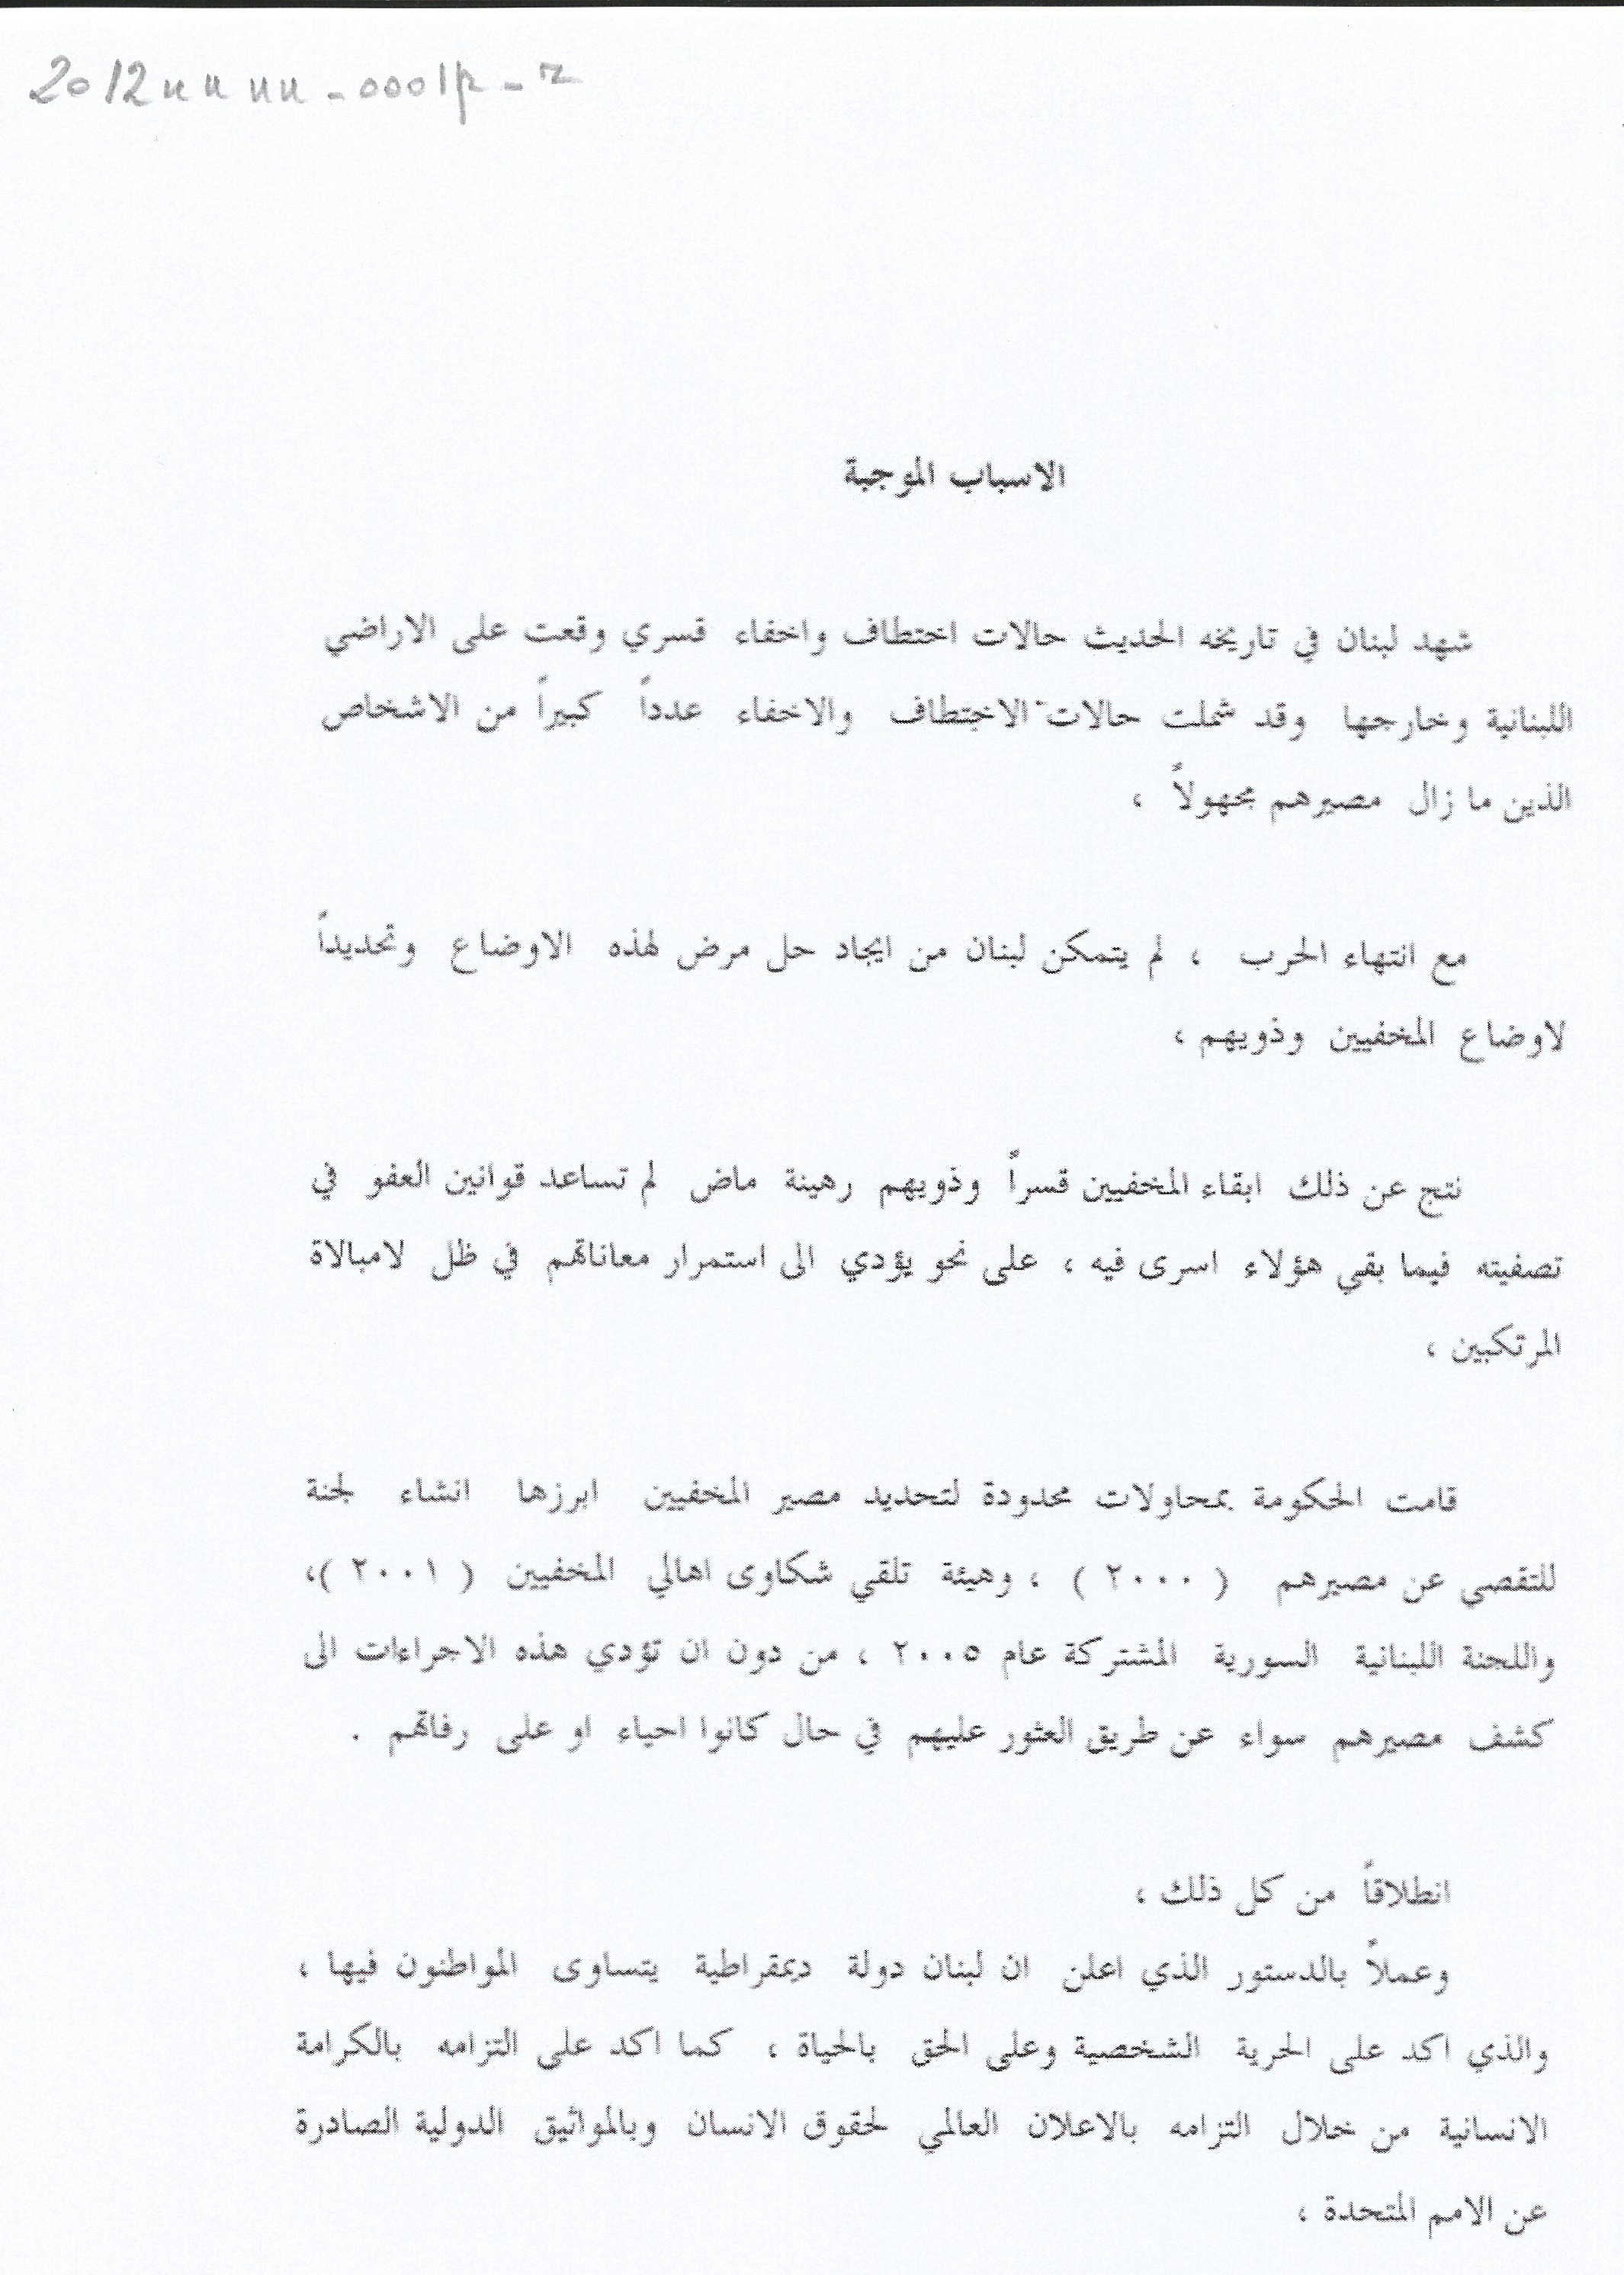 2012uuuu-0001p-r
الاسباب الموجبة
شهد لبنان في تاريخه الحديث حالات اختطاف واخفاء قسري وقعت على الاراضي
اللبنانية وخارجها وقد شملت حالات الاختطاف والاخفاء عدداً كبيراً من الاشخاص
الذين ما زال مصيرهم مجهولاً ،
مع انتهاء الحرب ، لم يتمكن لبنان من ايجاد حل مرض لهذه الاوضاع وتحديداً
لاوضاع المخفيين وذويهم ،
نتج عن ذلك ابقاء المخفيين قسراً وذويهم رهينة ماض لم تساعد قوانين العفو في
تصفيته فيما بقي هؤلاء اسرى فيه ، على نحو يؤدي الى استمرار معاناتهم في ظل لامبالاة
المرتكبين ،
قامت الحكومة بمحاولات محدودة لتحديد مصير المخفيين ابرزها انشاء لجنة
للتقصي عن مصيرهم ( ٢٠٠٠ ) ، وهيئة تلقي شكاوى اهالي المخفيين ( ٢٠٠١ )،
واللجنة اللبنانية السورية المشتركة عام ٢٠٠٥ ، من دون ان تؤدي هذه الاجراءات الى
كشف مصيرهم سواء عن طريق العثور عليهم في حال كانوا احياء او على رفاتهم .
انطلاقاً من كل ذلك ،
وعملاً بالدستور الذي اعلن ان لبنان دولة ديمقراطية يتساوى المواطنون فيها ،
والذي اكد على الحرية الشخصية وعلى الحق بالحياة ، كما اكد على التزامه بالكرامة
الانسانية من خلال التزامه بالاعلان العالمي لحقوق الانسان وبالمواثيق الدولية الصادرة
عن الامم المتحدة ،